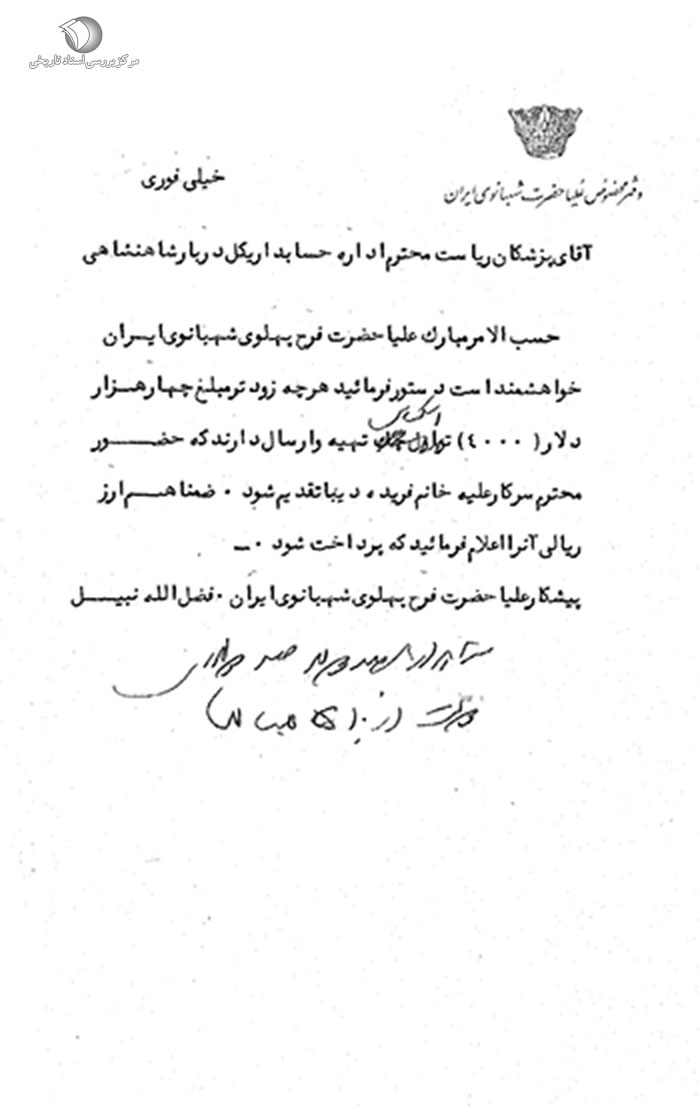 مرکز بررسی اسناد تاریخی
دفتر مخصوص علیاحضرت شهبانوی ایران
خیلی فوری
آقای پزشکان ریاست محترم اداره حسابداری کل دربار شاهنشاهی
حسب الامر مبارک علیاحضرت فرح پهلوی شهبانوی ایران
خواهشمند است دستور فرمائید هرچه زودتر مبلغ چهار هزار
اسکناس
دلار (٤٠٠٠) تهیه و ارسال دارند که حضور
محترم سرکار علیه خانم فریده دیبا تقدیم شود ۰ ضمنا هم ارز
ریالی آنرا اعلام فرمائید که پرداخت شود ۰ــ
پیشکار علیاحضرت فرح پهلوی شهبانوی ایران ۰ فضل الله نبیل